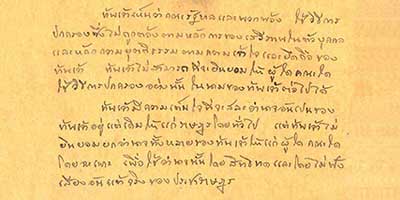 ข้าพเจ้าเห็นว่าคณะรัฐบาลและพวกพ้อง ใช้วิธีการ
ปกครองซึ่งไม่ถูกต้องตามหลักการของเสรีภาพในตัวบุคคล
และหลักความยุติธรรมตามความเข้าใจและยึดถือของ
ข้าพเจ้า ข้าพเจ้าไม่สามารถที่จะยินยอมให้ผู้ใด คณะใด
ใช้วิธีการปกครองอย่างนั้น ในนามของข้าพเจ้าต่อไปได้
ข้าพเจ้ามีความเต็มใจที่จะสละอำนาจอันเป็นของ
ข้าพเจ้าอยู่แต่เดิมให้แก่ราษฎรโดยทั่วไป แต่ข้าพเจ้าไม่
ยินยอมยกอำนาจทั้งหลายของข้าพเจ้าให้แก่ผู้ใด คณะใด
โดยเฉพาะ เพื่อใช้อำนาจนั้นโดยสิทธิขาด และโดยไม่ฟัง
เสียงอันแท้จริงของประชาราษฎร